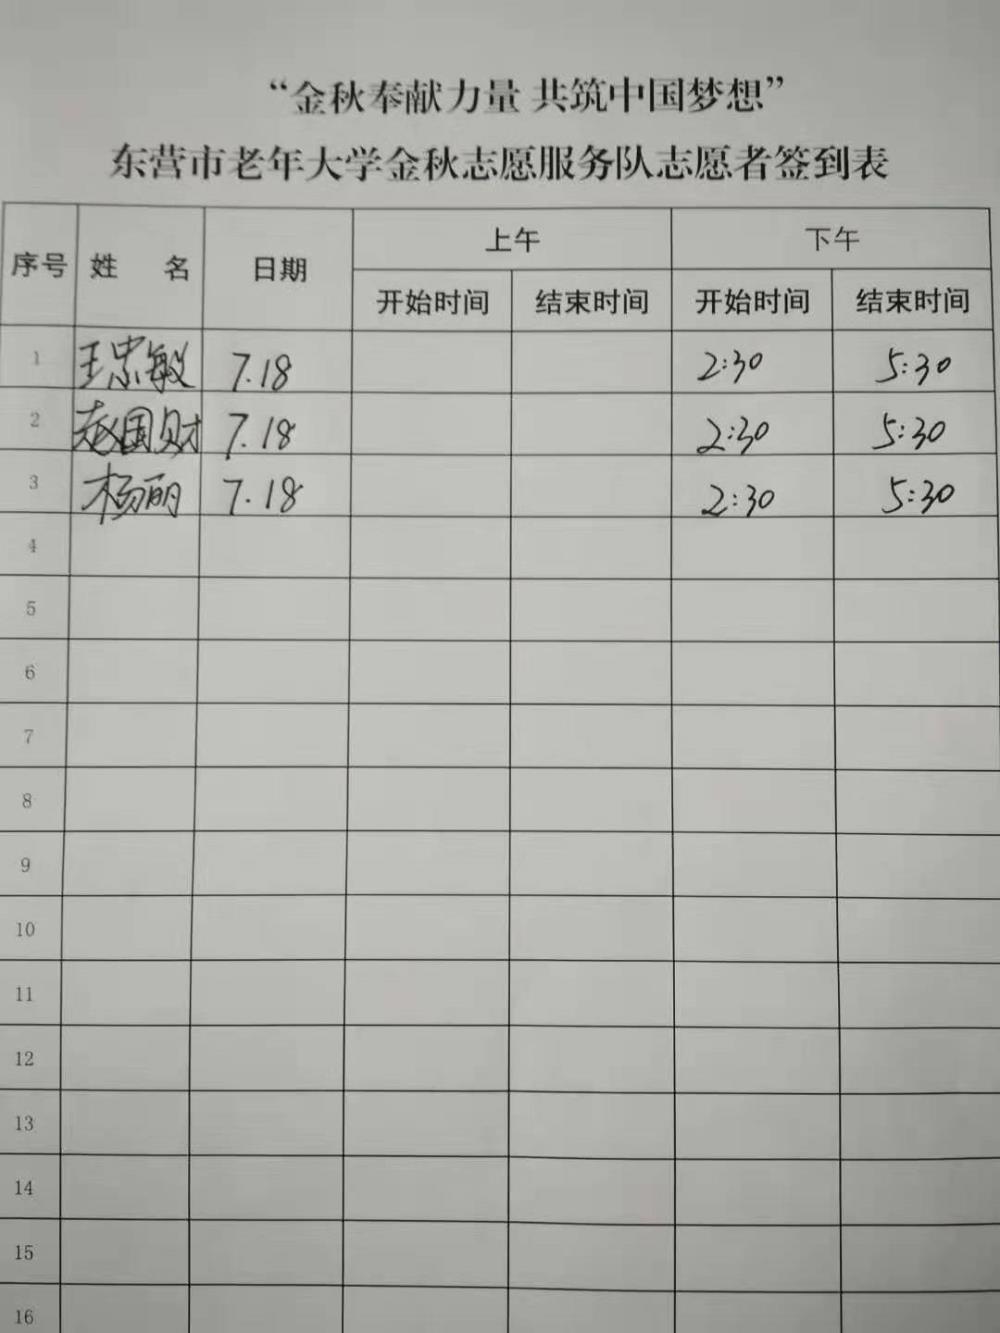 “金秋奉献力量 共筑中国梦想”
东营市老年大学金秋志愿服务队志愿者签到表
序号 姓 名 日期 上午 下午
开始时间 结束时间 开始时间 结束时间
1 王忠敏 7.18 2:30 5:30
2 赵国财 7.18 2:30 5:30
3 杨丽 7.18 2:30 5:30
4
5
6
7
8
9
10
11
12
13
14
15
16